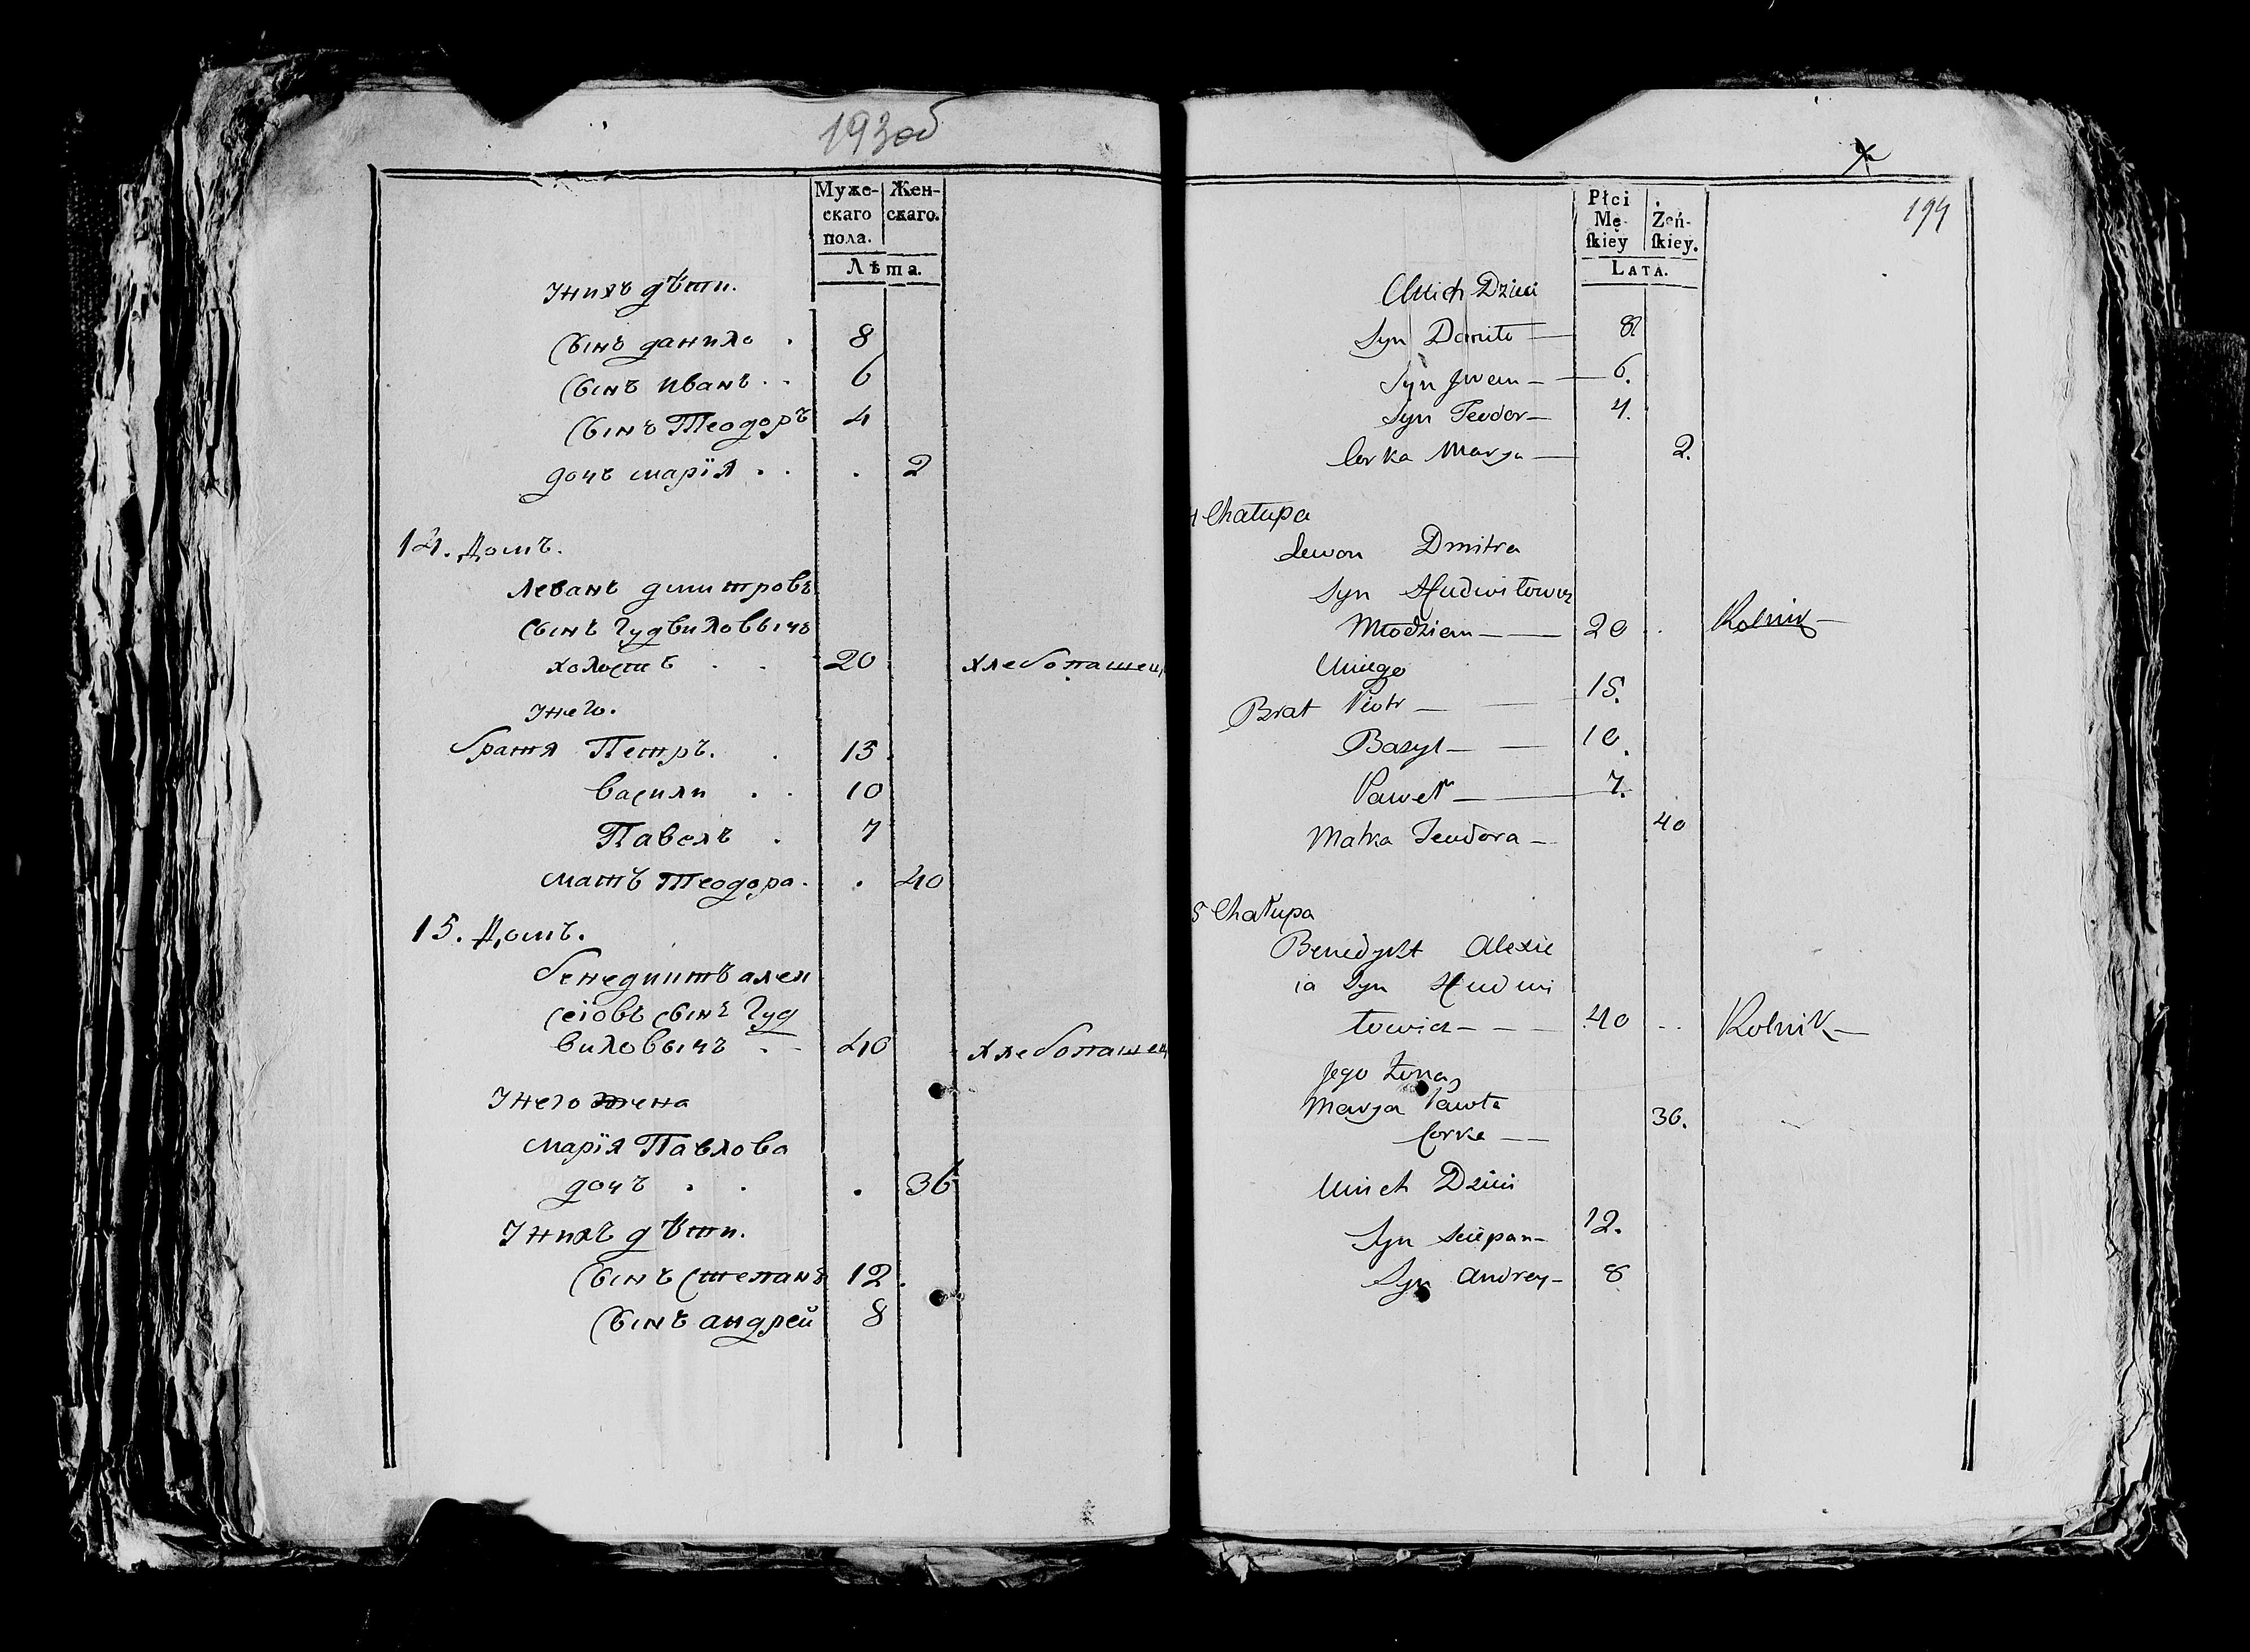 193об
Муже-
скаго
пола.
Жен-
скаго.
Лѣта.
Унихъ дѣти.
Сынъ данило . 8
Сынъ иванъ . . 6
Сынъ Теодоръ 4
дочъ марїя . . . 2
14. Домъ.
Леванъ димитровъ
Сынъ Гудвиловычъ
холостъ . . 20 хлебопашец
Унего.
братя Петръ. . 15
василии . . 10
Павелъ . 7
матъ Теодора . . 40
15. Домъ.
бенедиктъ алек
сеіовъ сынъ Гуд
виловычъ . - 40 хлебопашец
Унего жена
марїя Павлова
дочъ . . . 36
Унихъ дѣти.
Сынъ Степанъ 12.
Сынъ андрей 8
194
Płci
Mę-
ſkiey
Żeń-
ſkiey.
LATA.
Unich Dzieci
Syn Daniło — 8
Syn Jwan — 6.
Syn Teodor — 4.
Corka Marya — 2.
4 Chałupa
Lewon Dmitra
Syn Hudwiłowicz
Młodzian — — 20 . . Rolnik —
Uniego
Brat Piotr — — 15.
Bazyl — — 10.
Paweł — 7.
Matka Teodora — 40
5 Chałupa
Benedykt Alexie
ia Syn Hudwi
łowicz — — 40 . . Rolnik —
Jego Żona
Marya Pawła
Corka — — 36.
Unich Dzieci
Syn Sciepan — 12.
Syn Andrey — 8